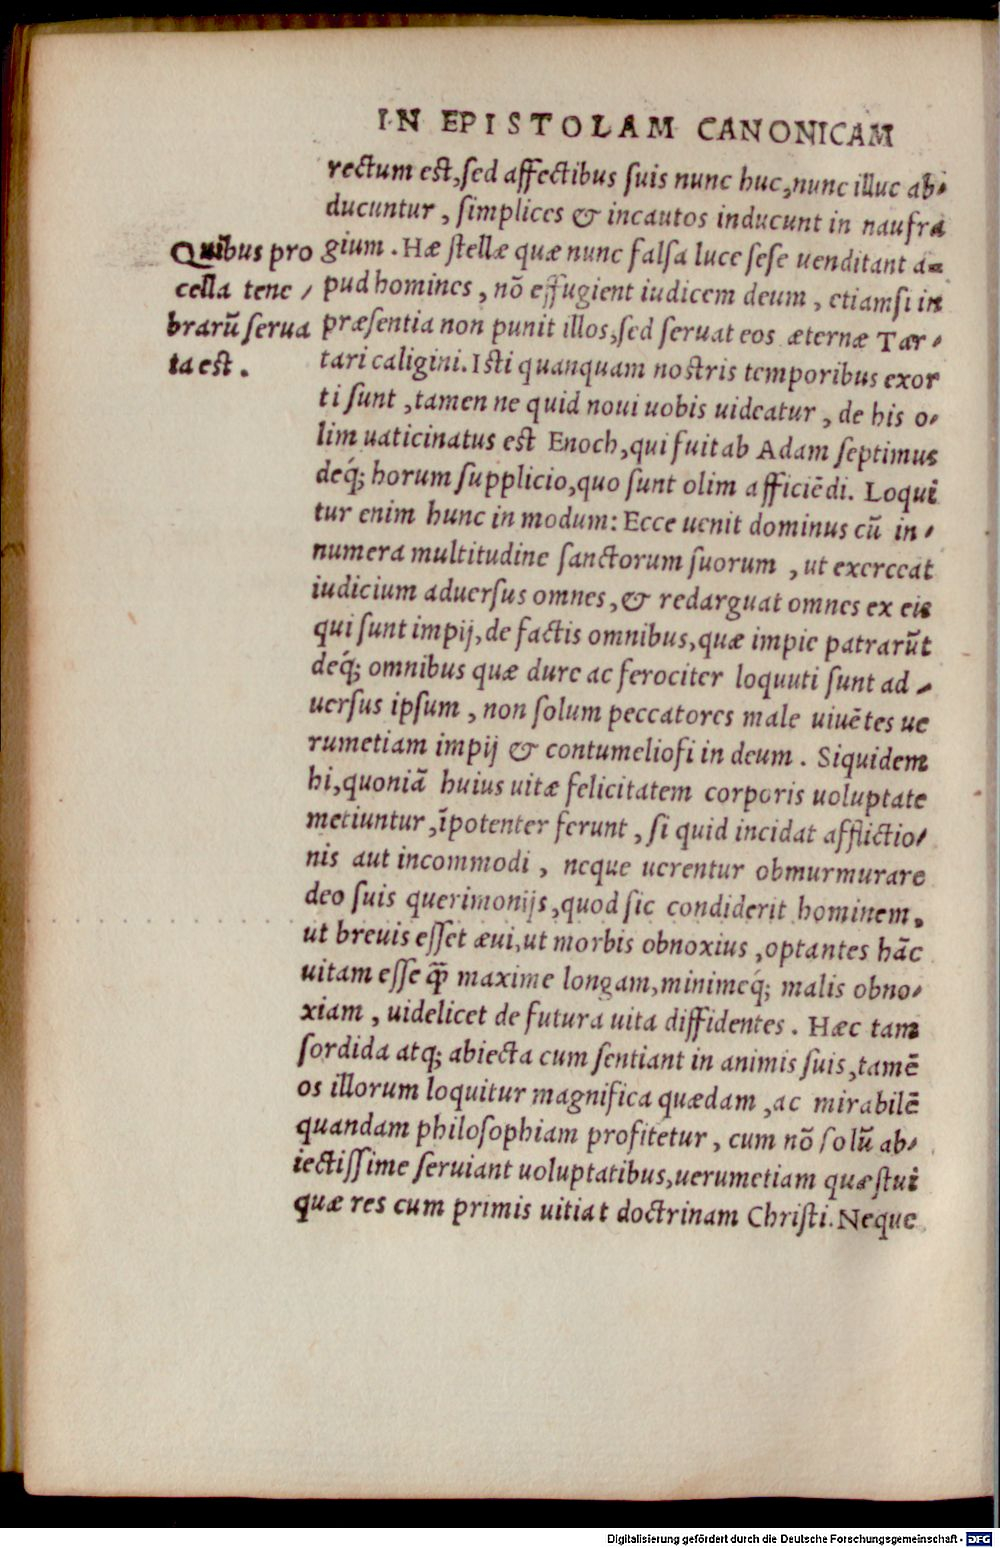 IN EPISTOLAM CANONICAM
rectum est, sed affectibus suis nunc huc, nunc illuc ab-
ducuntur, simplices & incautos inducunt in naufra
gium. Hæ stellæ quæ nunc falsa luce sese uenditant a-
pud homines, nō effugient iudicem deum, etiamsi in
præsentia non punit illos, sed seruat eos æternæ Tar-
tari caligini. Isti quanquam nostris temporibus exor
ti sunt, tamen ne quid noui uobis uideatur, de his o-
lim uaticinatus est Enoch, qui fuit ab Adam septimus
deq́; horum supplicio, quo sunt olim afficiēdi. Loqui
tur enim hunc in modum: Ecce uenit dominus cū in-
numera multitudine sanctorum suorum, ut exerceat
iudicium aduersus omnes, & redarguat omnes ex eis
qui sunt impij, de factis omnibus, quæ impie patrarūt
deq́; omnibus quæ dure ac ferociter loquuti sunt ad-
uersus ipsum, non solum peccatores male uiuētes ue
rumetiam impij & contumeliosi in deum. Siquidem
hi, quoniā huius uitæ felicitatem corporis uoluptate
metiuntur, īpotenter ferunt, si quid incidat afflictio-
nis aut incommodi, neque uerentur obmurmurare
deo suis querimonijs, quod sic condiderit hominem,
ut breuis esset æui, ut morbis obnoxius, optantes hāc
uitam esse q̄ maxime longam, minimeq́; malis obno-
xiam, uidelicet de futura uita diffidentes. Hæc tam
sordida atq; abiecta cum sentiant in animis suis, tamē
os illorum loquitur magnifica quædam, ac mirabilē
quandam philosophiam profitetur, cum nō solū ab-
iectissime seruiant uoluptatibus, uerumetiam quæstui
quæ res cum primis uitiat doctrinam Christi. Neque
Quibus pro
cella tene-
brarū serua
ta est.
Digitalisierung gefördert durch die Deutsche Forschungsgemeinschaft - DFG